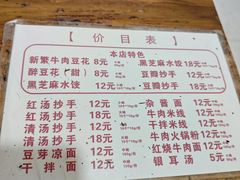 【价目表】
本店特色
新繁牛肉豆花 8元 黑芝麻水饺 18元
醉豆花(甜) 8元 豆瓣抄手 18元
黑芝麻水饺 12元 豆瓣抄手 12元
红汤抄手 12元 杂酱面 12元
红汤抄手 18元 牛肉米线 12元
清汤抄手 12元 干拌米线 12元
清汤抄手 18元 牛肉火锅粉 12元
豆芽凉面 12元 红烧牛肉面 12元
干拌面 12元 银耳汤 5元